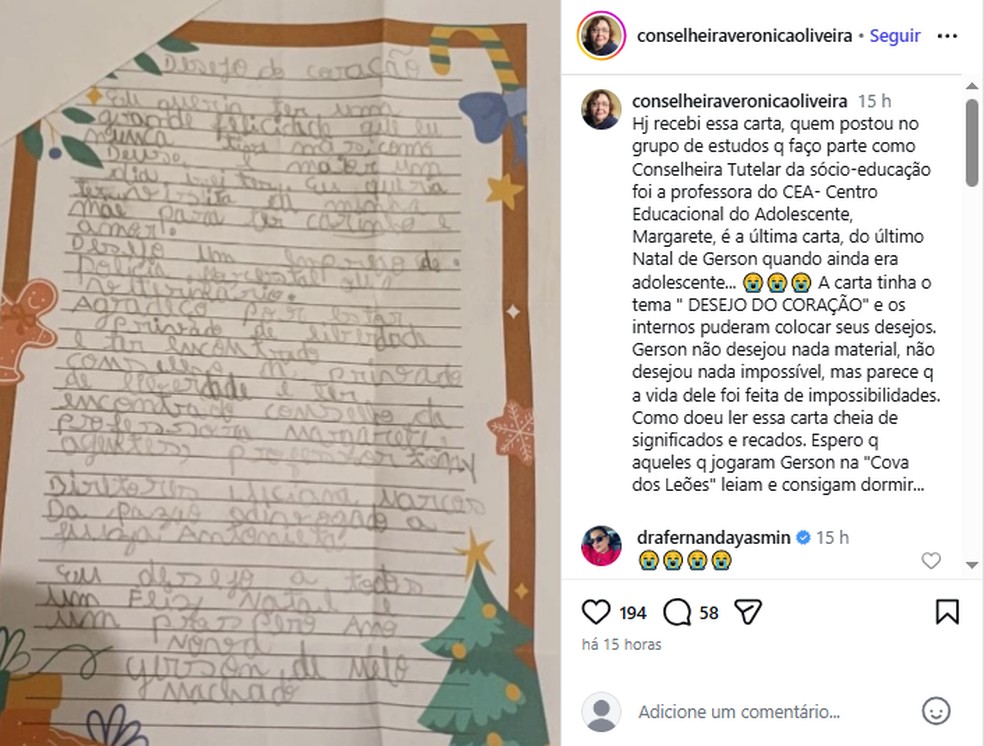 Desejo do coração
Eu queria ter uma
grande felicidade que eu
nunca tive mas como
Deus
dia eu queria
minha
mãe para ter carinho e
amor.
Desejo um emprego de
Policia
Agradeço por estar
privado de liberdade
e ter encontrado
conselho privado
de liberdade e ter
encontrado conselho da
professora Margarete
agentes professor tony
Diretores Luciana Marcos
Da
juiza Antonieta
Eu desejo a todos
um Feliz Natal e
um prospero Ano
Novo
gerson de Melo
Machado
conselheiraveronicaoliveira • Seguir
conselheiraveronicaoliveira 15 h
Hj recebi essa carta, quem postou no
grupo de estudos q faço parte como
Conselheira Tutelar da sócio-educação
foi a professora do CEA- Centro
Educacional do Adolescente,
Margarete, é a última carta, do último
Natal de Gerson quando ainda era
adolescente... 😭😭😭 A carta tinha o
tema " DESEJO DO CORAÇÃO" e os
internos puderam colocar seus desejos.
Gerson não desejou nada material, não
desejou nada impossível, mas parece q
a vida dele foi feita de impossibilidades.
Como doeu ler essa carta cheia de
significados e recados. Espero q
aqueles q jogaram Gerson na "Cova
dos Leões" leiam e consigam dormir...
drafernandayasmin 15 h
😭😭😭😭
194 58
há 15 horas
Adicione um comentário...